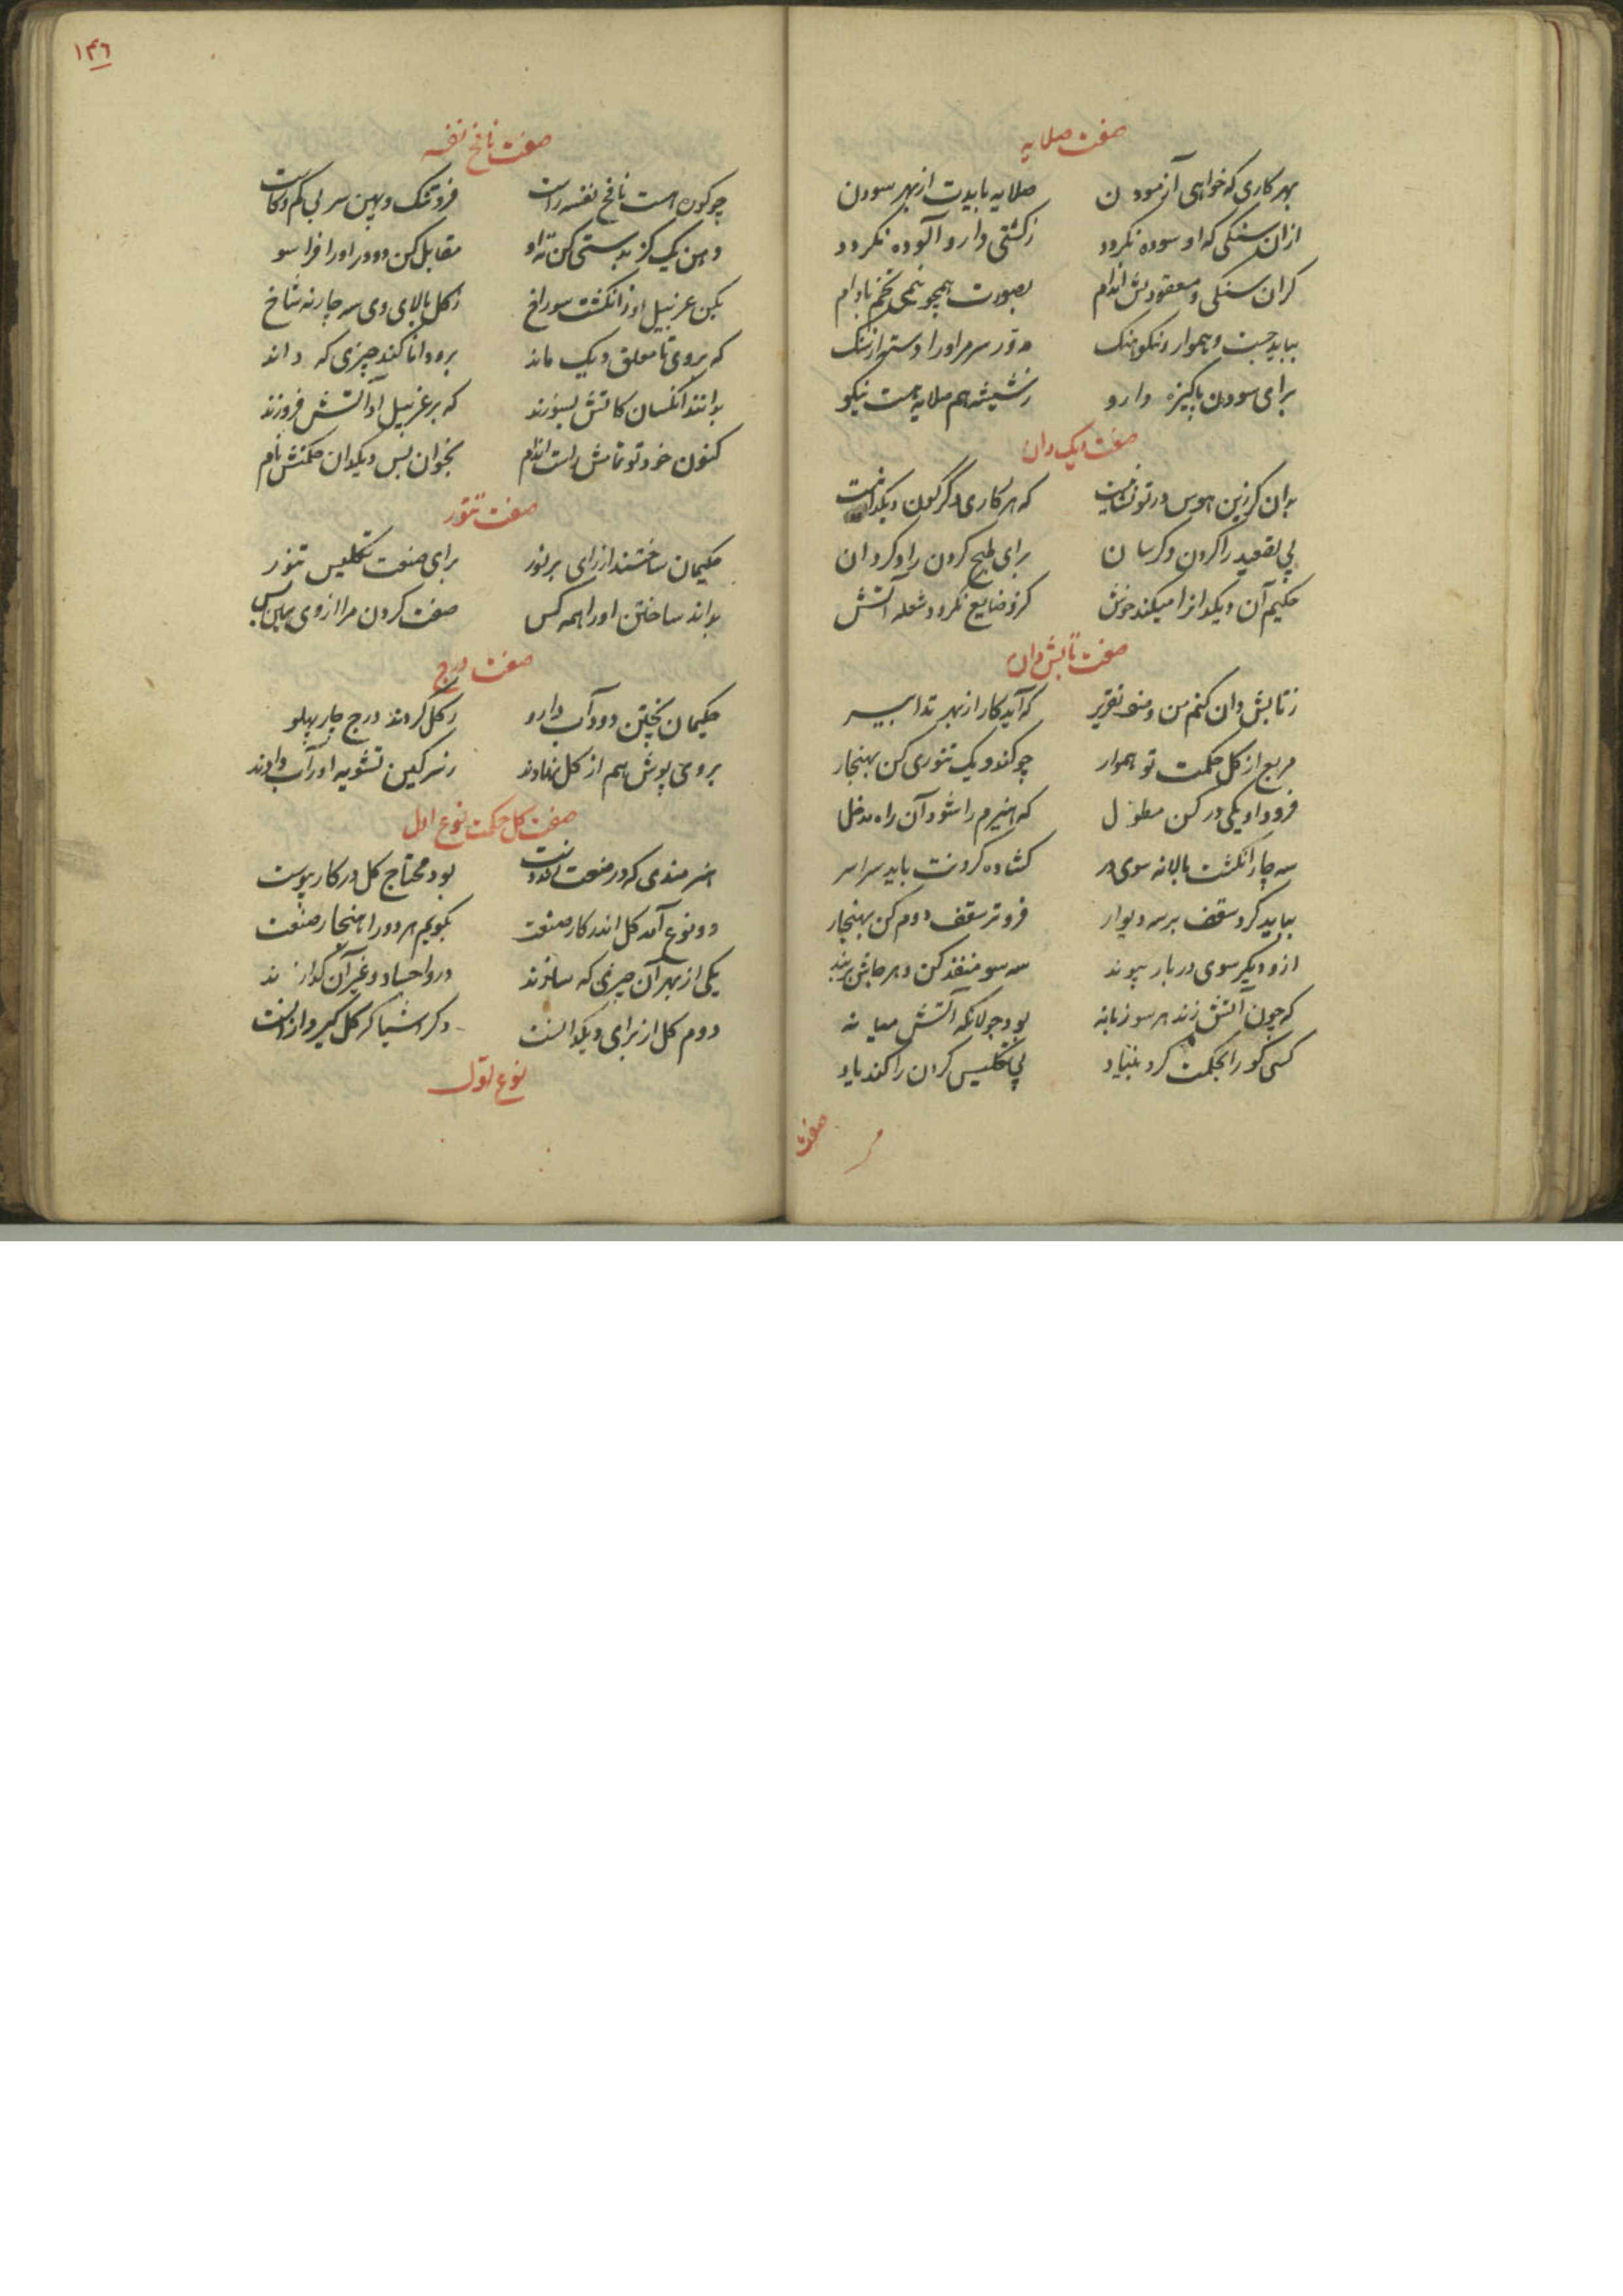 صفت صلایه
بهر کاری که خواهی آزمودن صلایه بایدت از بهر سودن
ازان سنکی که او سوده نکردد زکشتی دارو آلوده نکردد
کران سنکی و معقودش اندام بصورت همچو نیمی تخم بادام
بباید جست و هموار و نکو سنک مدور سر مر اورا دسته از سنک
برای سودن پاکیزه دارو زشیشه هم صلایه هست نیکو
صفت دیک دان
بدان کزین هوس در تو که هر کاری دکرکون دیکدانست
پی تصعید را کردن برای طبخ کردن را
حکیم آن دیکدانرا میکند خوش کزو ضایع نکردد شعله آتش
صفت تابش دان
زتابش دان کنم من تقریر که آید کار از بهر تدابیر
مربع از کل حکمت تو هموار چو کندو یک تنوری کن بهنجار
فرود او یکی در کن مطول که هیزم را شود آن راه مدخل
سه چار انکشت بالانه سوی در کشاده کردنت باید سراسر
بباید کرد سقف بر سه دیوار فروتر سقف دوم کن بهنجار
ازو دیکر سوی در بار پیوند سه سو منفذ کن و هر جاش بربند
که چون آتش زند هر سو زبانه بود جولانکه آتش میانه
کسی کو را بحکمت کرد بنیاد پی تکلیس کردن را کند یاد
صفت
۱۴۶
صفت نافخ نفسه
چو کون هست نافخ نفسه راست فرو تنک و پهن سر بی کم و کاست
دهن یک کز بدستی کن ته او مقابل کن دو در اورا فرا سو
بکن غربیل او ز انکشت سوراخ زکل بالای وی سه چار نه شاخ
که بر وی تا معلق دیک ماند برو دانا کند چیزی که داند
بدانند آنکسان کاتش بسوزند که بر غربیل او آتش فروزند
کنون خود تو تمامش راست اندام بخوان پس دیکدان حکمتش نام
صفت تنور
حکیمان ساختند از رای پرنور برای صنعت تکلیس تنور
بداند ساختن اورا همه کس صفت کردن مرا از وی همین بس
صفت درج
حکیمان پختن دود آب دارو زکل کردند درج چار پهلو
بروی پوش هم از کل نهادند زسرکین تشویه اورا آب دادند
صفت کل حکمت نوع اول
هنرمندی که در صنعت بود محتاج کل در کار پیوست
دو نوع آمد کل اندر کار صنعت بکویم هر دو را هنجار صنعت
یکی از بهر آن چیزی که سازند درو اجساد و غیر آن کدازند
دوم کل از برای دیکدانست دکر اشیا کز کل کیرد ازانست
نوع اول